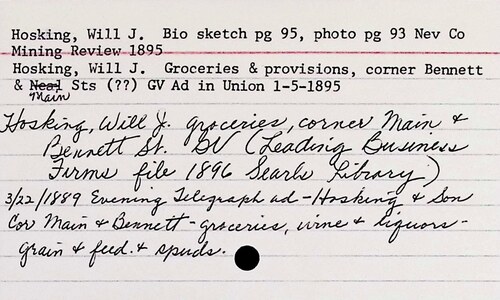 Hosking, Will J.  Bio sketch pg 95, photo pg 93 Nev Co
Mining Review 1895
Hosking, Will J.  Groceries & provisions, corner Bennett
& Neal Sts (??) GV Ad in Union 1-5-1895
Main
Hosking, Will J. groceries, corner Main &
Bennett St. GV (Leading Business
Firms file 1896 Searls Library)
3/22/1889 Evening Telegraph ad - Hosking & Son
Cor Main & Bennett - groceries, wine & liquors -
grain & feed. & spuds.